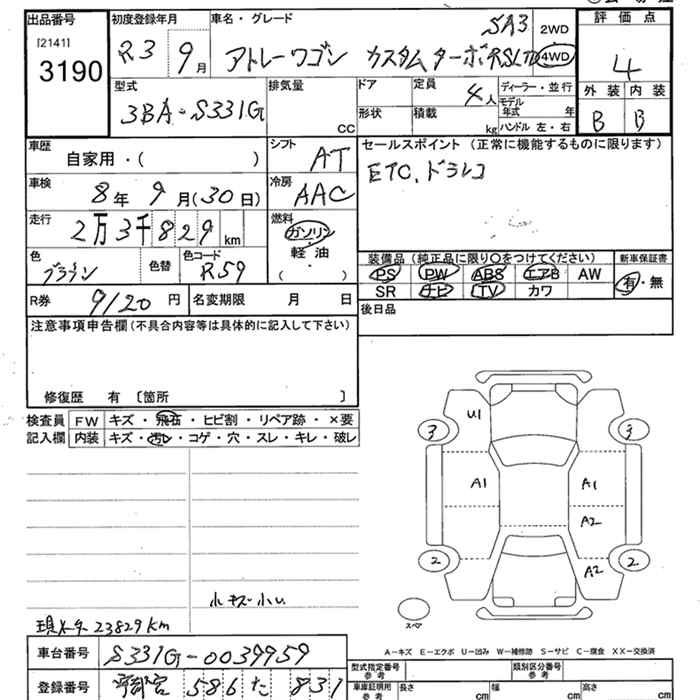 出品番号
[2141]
3190
初度登録年月
R3 9月
車名・グレード
SA3
アトレーワゴン カスタムターボRSLTD
2WD
4WD
評価点
4
外装 内装
B B
型式
3BA-S331G
排気量
CC
ドア
形状
定員
4人
積載
kg
ディーラー・並行
モデル年式 年
ハンドル 左・右
車歴
自家用・( )
シフト
AT
車検
8年9月(30日)
冷房
AAC
走行
2万3千829km
燃料
ガソリン
・
軽油
( )
色
ブラウン
色替
色コード
R59
R券
9120円
名変期限 月 日
セールスポイント (正常に機能するものに限ります)
ETC、ドラレコ
装備品 (純正品に限り〇をつけてください)
PS PW ABS エアB AW
SR ナビ TV カワ
新車保証書
有・無
後日品
注意事項申告欄(不具合内容等は具体的に記入して下さい)
修復歴 有 [箇所 ]
検査員記入欄
FW キズ・飛石・ヒビ割・リペア跡・×要
内装 キズ・汚レ・コゲ・穴・スレ・キレ・破レ
小キズ小U
現メータ 23829km
U1
3 3
A1 A1
A2
2 A2 2
スペア
A-キズ E-エクボ U-凹み W-補修跡 S-サビ C-腐食 XX-交換済
車台番号
S331G-0039959
登録番号
宇都宮 586 た 831
型式指定番号
参考
類別区分番号
参考
車庫証明用
参考
長さ cm
幅 cm
高さ cm